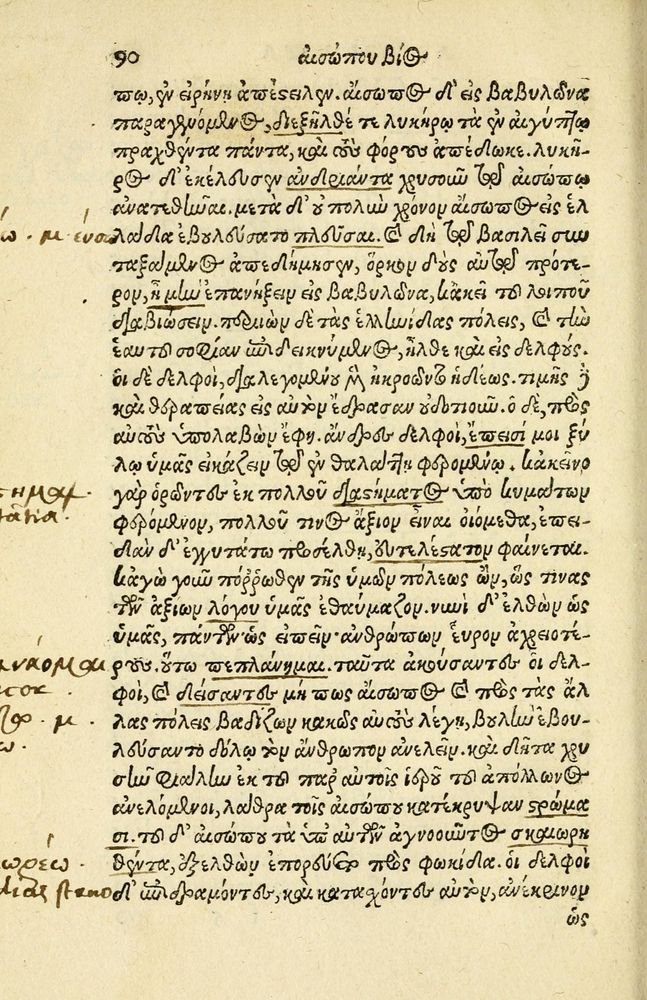 90 αἰσώπου βίος
πῳ, ἐν εἰρήνῃ ἀπέστειλεν. αἴσωπος δ' εἰς βαβυλῶνα
παραγενόμενος, διεξῆλθέ τε λυκήρῳ τὰ ἐν αἰγύπτῳ
πραχθέντα πάντα, καὶ τοὺς φόρους ἀπέδωκε. λυκῆ-
ρος δ' ἐκέλευσεν ἀνδριάντα χρυσοῦν τῷ αἰσώπῳ
ἀνατεθῆναι. μετὰ δ' οὐ πολὺν χρόνον αἴσωπος εἰς ἑλ
λάδα ἐβουλεύσατο πλεῦσαι. καὶ δὴ τῷ βασιλεῖ συν
ταξάμενος ἀπεδήμησεν, ὅρκον δοὺς αὐτῷ πρότε-
ρον, ἦ μὴν ἐπανήξειν εἰς βαβυλῶνα, κἀκεῖ τοῦ λοιποῦ
διαβιώσειν. περιϊὼν δὲ τὰς ἑλληνίδας πόλεις, καὶ τὴν
ἑαυτοῦ σοφίαν ἐπιδεικνύμενος, ἦλθε καὶ εἰς δελφούς.
οἱ δὲ δελφοὶ, διαλεγομένου μὲν ἠκροῶντο ἡδέως. τιμῆς δὲ
καὶ θεραπείας εἰς αὐτὸν ἔδρασαν οὐδοτιοῦν. ὁ δὲ, πρὸς
αὐτοὺς ὑπολαβὼν ἔφη. ἄνδρες δελφοὶ, ἔπεισί μοι ξύ
λῳ ὑμᾶς εἰκάζειν τῷ ἐν θαλάττῃ φερομένῳ. κἀκεῖνο
γὰρ ὁρῶντες ἐκ πολλοῦ διαστήματος ὑπὸ κυμάτων
φερόμενον, πολλοῦ τινος ἄξιον εἶναι οἰόμεθα, ἐπει-
δὰν δ' ἐγγυτάτω προσέλθῃ, εὐτελέστατον φαίνεται.
κἀγὼ γοῦν πόῤῥωθεν τῆς ὑμῶν πόλεως ὢν, ὥς τινας
τῶν ἀξίων λόγου ὑμᾶς ἐθαύμαζον. νυνὶ δ' ἐλθὼν ὡς
ὑμᾶς, πάντων ὡς εἰπεῖν ἀνθρώπων εὗρον ἀχρειοτέ-
ρους. οὕτω πεπλάνημαι. ταῦτα ἀκούσαντες οἱ δελ-
φοὶ, καὶ δείσαντες μή πως αἴσωπος καὶ πρὸς τὰς ἄλ
λας πόλεις βαδίζων κακῶς αὐτοὺς λέγῃ, βουλὴν ἐβου-
λεύσαντο δόλῳ τὸν ἄνθρωπον ἀνελεῖν. καὶ δῆτα χρυ
σῆν φιάλην ἐκ τοῦ παρ' αὐτοῖς ἱεροῦ τοῦ ἀπόλλωνος
ἀνελόμενοι, λάθρα τοῖς αἰσώπου κατέκρυψαν στρώμα
σι. τοῦ δ' αἰσώπου τὰ ὑπ' αὐτῶν ἀγνοοῦντος σκαιωρη
θέντα, ἐξελθὼν ἐπορεύετο πρὸς φωκίδα. οἱ δελφοὶ
δ' ἐπιδραμόντες, καὶ κατασχόντες αὐτὸν, ἀνέκρινον
ὡς